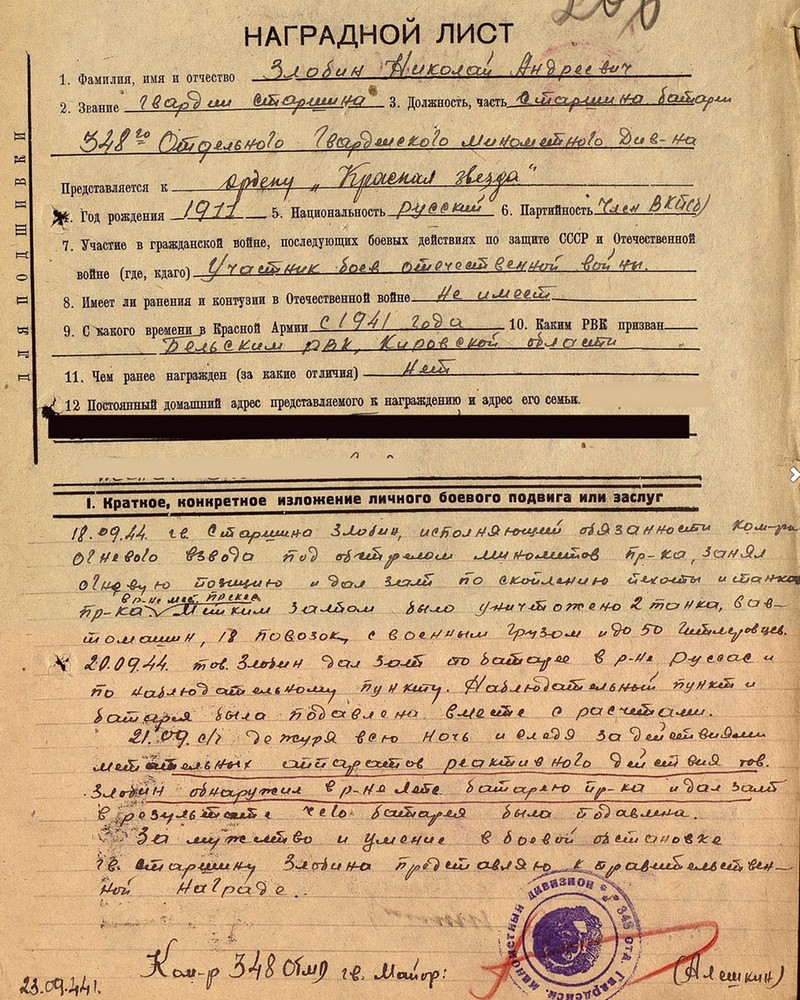 НАГРАДНОЙ ЛИСТ
1. Фамилия, имя и отчество Злобин Николай Андреевич
2. Звание гвардии старшина 3. Должность, часть Старшина батареи
348го Отдельного Гвардейского минометного Див-на
Представляется к ордену „Красная звезда"
4. Год рождения 1911 5. Национальность русский 6. Партийность Член ВКП(б)
7. Участие в гражданской войне, последующих боевых действиях по защите СССР и Отечественной
войне (где, кдаго) Участник боев отечественной войны.
8. Имеет ли ранения и контузии в Отечественной войне Не имеет
9. С какого времени в Красной Армии с 1941 года 10. Каким РВК призван
Бельским РВК, Кировской области
11. Чем ранее награжден (за какие отличия) Нет
12 Постоянный домашний адрес представляемого к награждению и адрес его семьи.
ДЛЯ ПОДШИВКИ
I. Краткое, конкретное изложение личного боевого подвига или заслуг
18.09.44. гв. Старшина Злобин, исполняющий обязанности ком-ра
огневого взвода под обстрелом минометов пр-ка, занял
огневую позицию и дал залп по скоплению пехоты и танков
в р-не мест.
пр-ка. Метким залпом было уничтожено 2 танка, 8 ав-
томашин, 18 повозок, с военным грузом и до 50 гитлеровцев.
20.09.44. тов. Злобин дал залп по батарее в р-не Руссас и
по наблюдательному пункту. Наблюдательный пункт и
батарея была подавлена вместе с расчетами.
21.09. с/г дежуря всю ночь и следя за действиями
метательных аппаратов реактивного действия тов.
Злобин обнаружил в р-не Лепс. батарею пр-ка и дал залп
в результате чего батарея была подавлена.
За мужество и умение в боевой обстановке
гв. старшину Злобина представляю к правительствен-
ной награде.
Ком-р 348 ОГМД гв. Майор: (Алешкин)
23.09.44г.
348 отд. Гвардейск. минометный дивизион